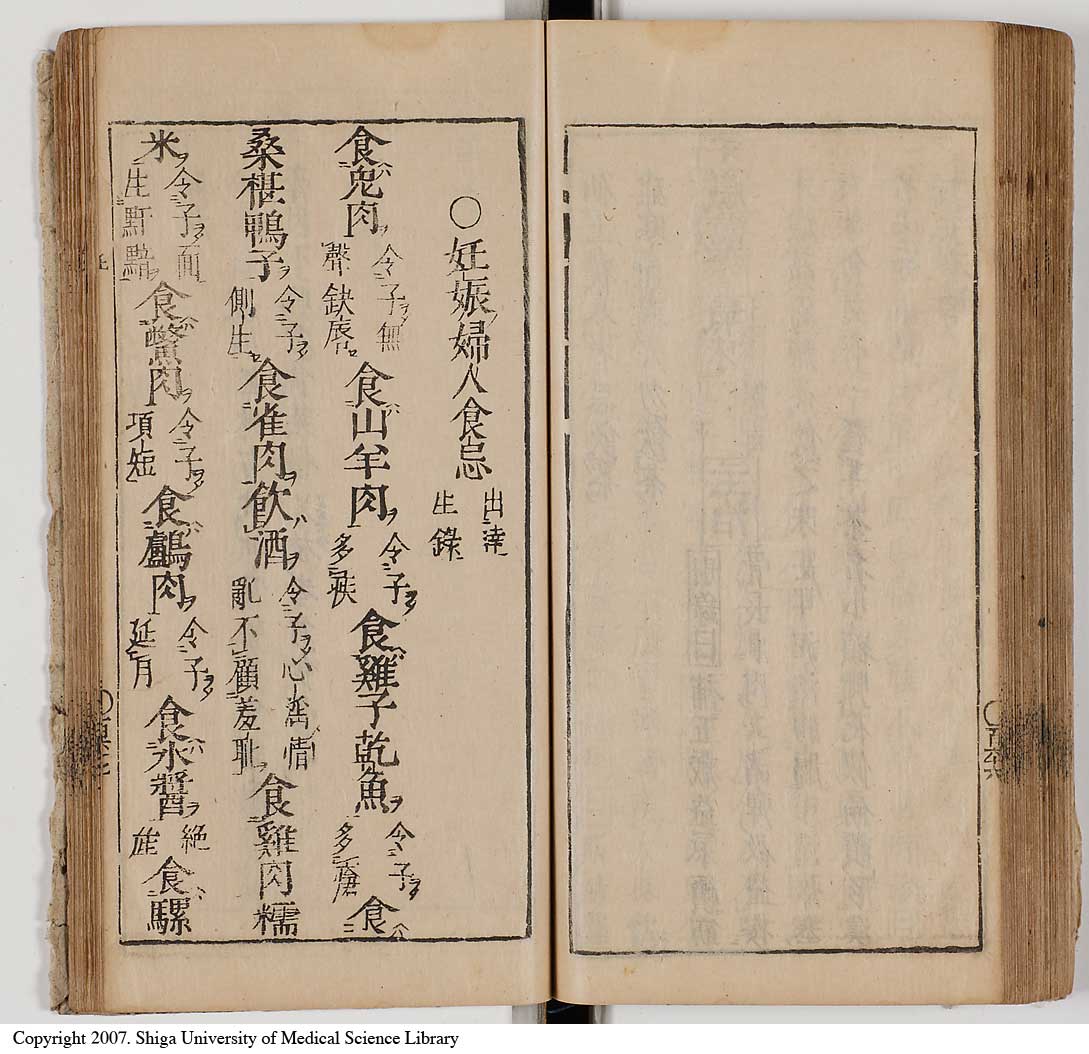 〇妊娠婦人食忌 出達生錄
食兎肉 令子無聲缺唇 食山羊肉 令子多疾 食雞子乾魚 令子多瘡 食
桑椹鴨子 令子側生 食雀肉飲酒 令子心滛情亂不顧羞恥 食雞肉糯
米 令子面生 食鱉肉 令子項短 食鸕肉 令子延月 食氷醬 絕産 食騾